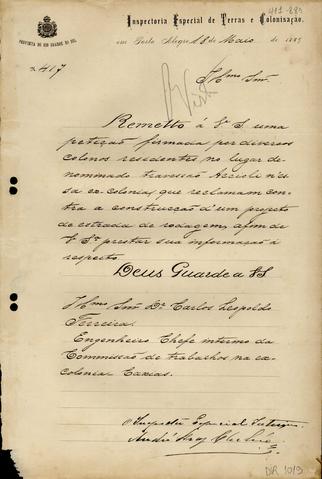 481-883
Inspectoria Especial de Terras e Colonisação.
PROVINCIA DO RIO GRANDE DO SUL
em Porto Alegre, 18 de Maio de 1885
N 417
Illmo Snr.
Visto
Remetto á Vª Sª uma
petição firmada por diversos
colonos residentes no lugar de-
nominado travessão Accioli nessa
ex-colonia, que reclamam con-
tra a construcção d'um projecto
de estrada de rodagem, afim de
Vª Sª prestar sua informação a
respeito.
Deus Guarde a VS
Illmo Snr Dr Carlos Leopoldo
Ferreira.
Engenheiro Chefe interino da
Commissão de trabalhos na ex-
colonia Caxias.
O Inspector Especial Interino
André
DIR 1013